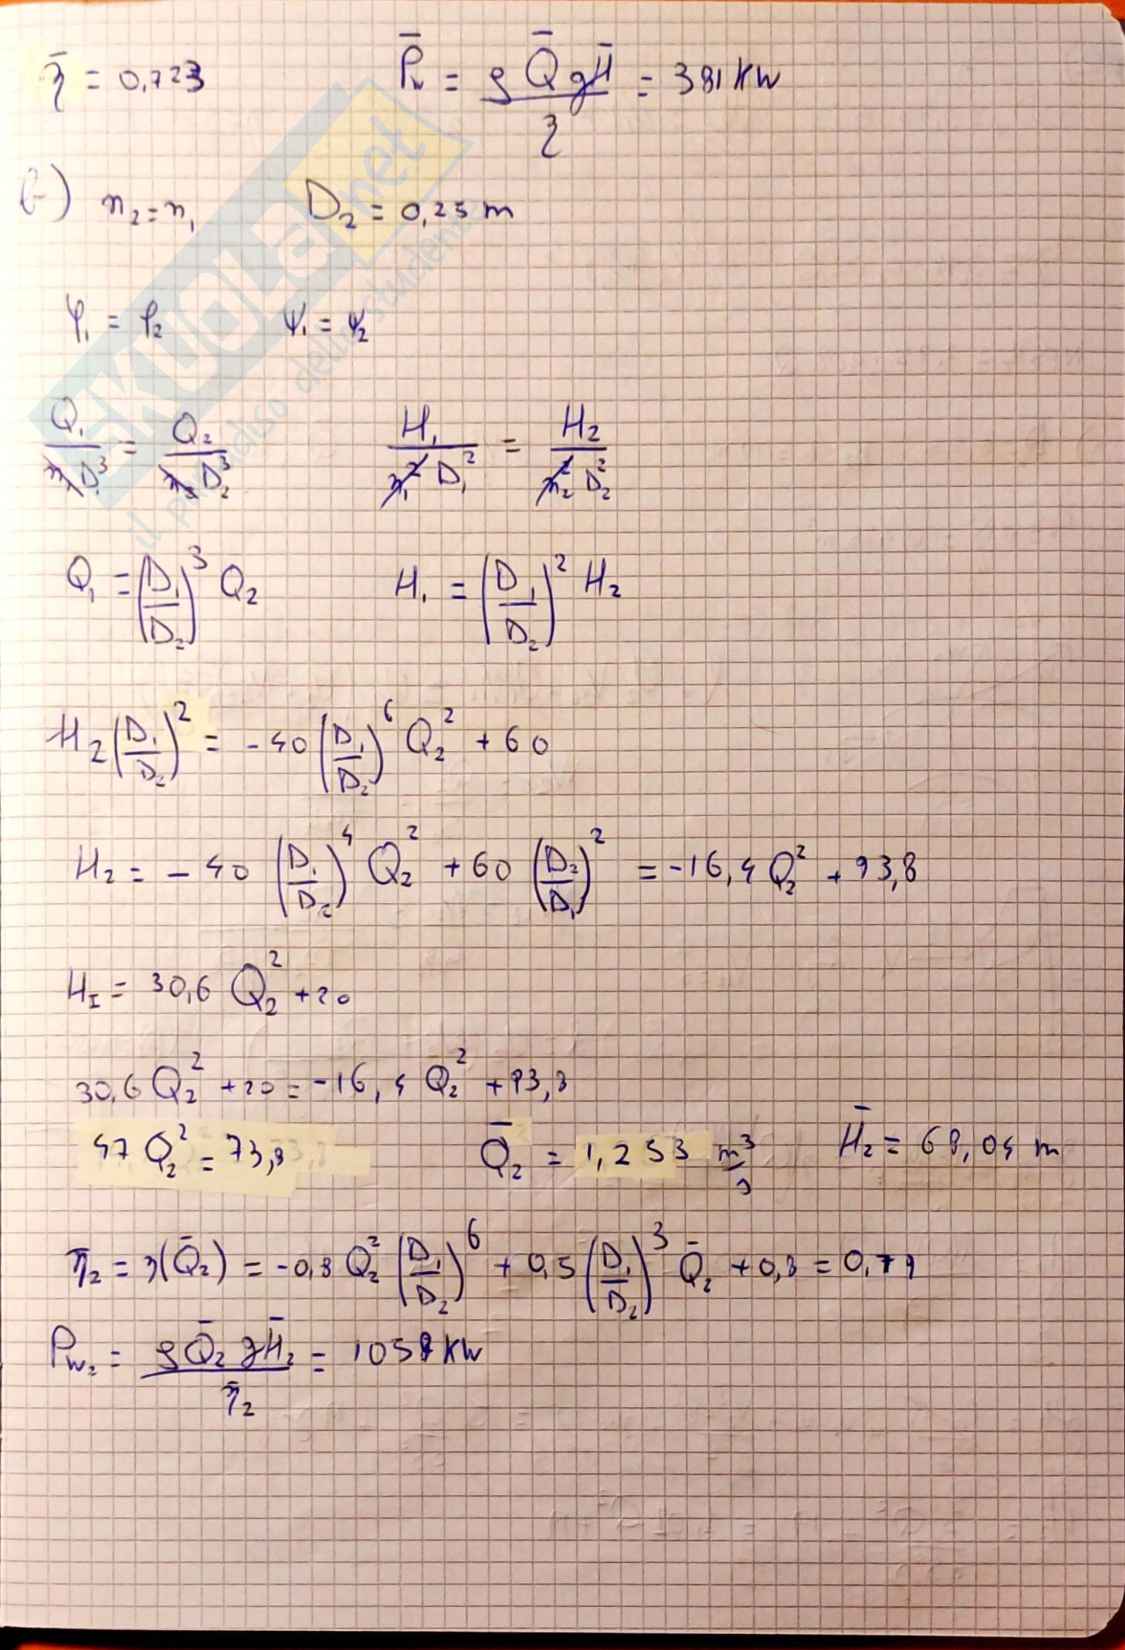 η̄ = 0,723    P̄w = ρ Q̄ g H̄ / η = 381 kW
b) n₂ = n₁    D₂ = 0,25 m
φ₁ = φ₂    ψ₁ = ψ₂
Q₁ / n₁D₁³ = Q₂ / n₂D₂³    H₁ / n₁² D₁² = H₂ / n₂² D₂²
Q₁ = (D₁/D₂)³ Q₂    H₁ = (D₁/D₂)² H₂
H₂ (D₁/D₂)² = -40 (D₁/D₂)⁶ Q₂² + 60
H₂ = -40 (D₁/D₂)⁴ Q₂² + 60 (D₂/D₁)² = -16,4 Q₂² + 93,8
H_I = 30,6 Q₂² + 20
30,6 Q₂² + 20 = -16,4 Q₂² + 93,8
47 Q₂² = 73,8    Q̄₂ = 1,253 m³/s    H̄₂ = 68,04 m
η̄₂ = η(Q̄₂) = -0,8 Q̄₂² (D₁/D₂)⁶ + 0,5 (D₁/D₂)³ Q̄₂ + 0,8 = 0,79
Pw₂ = ρ Q̄₂ g H̄₂ / η̄₂ = 1058 kW
SKUOLA.net